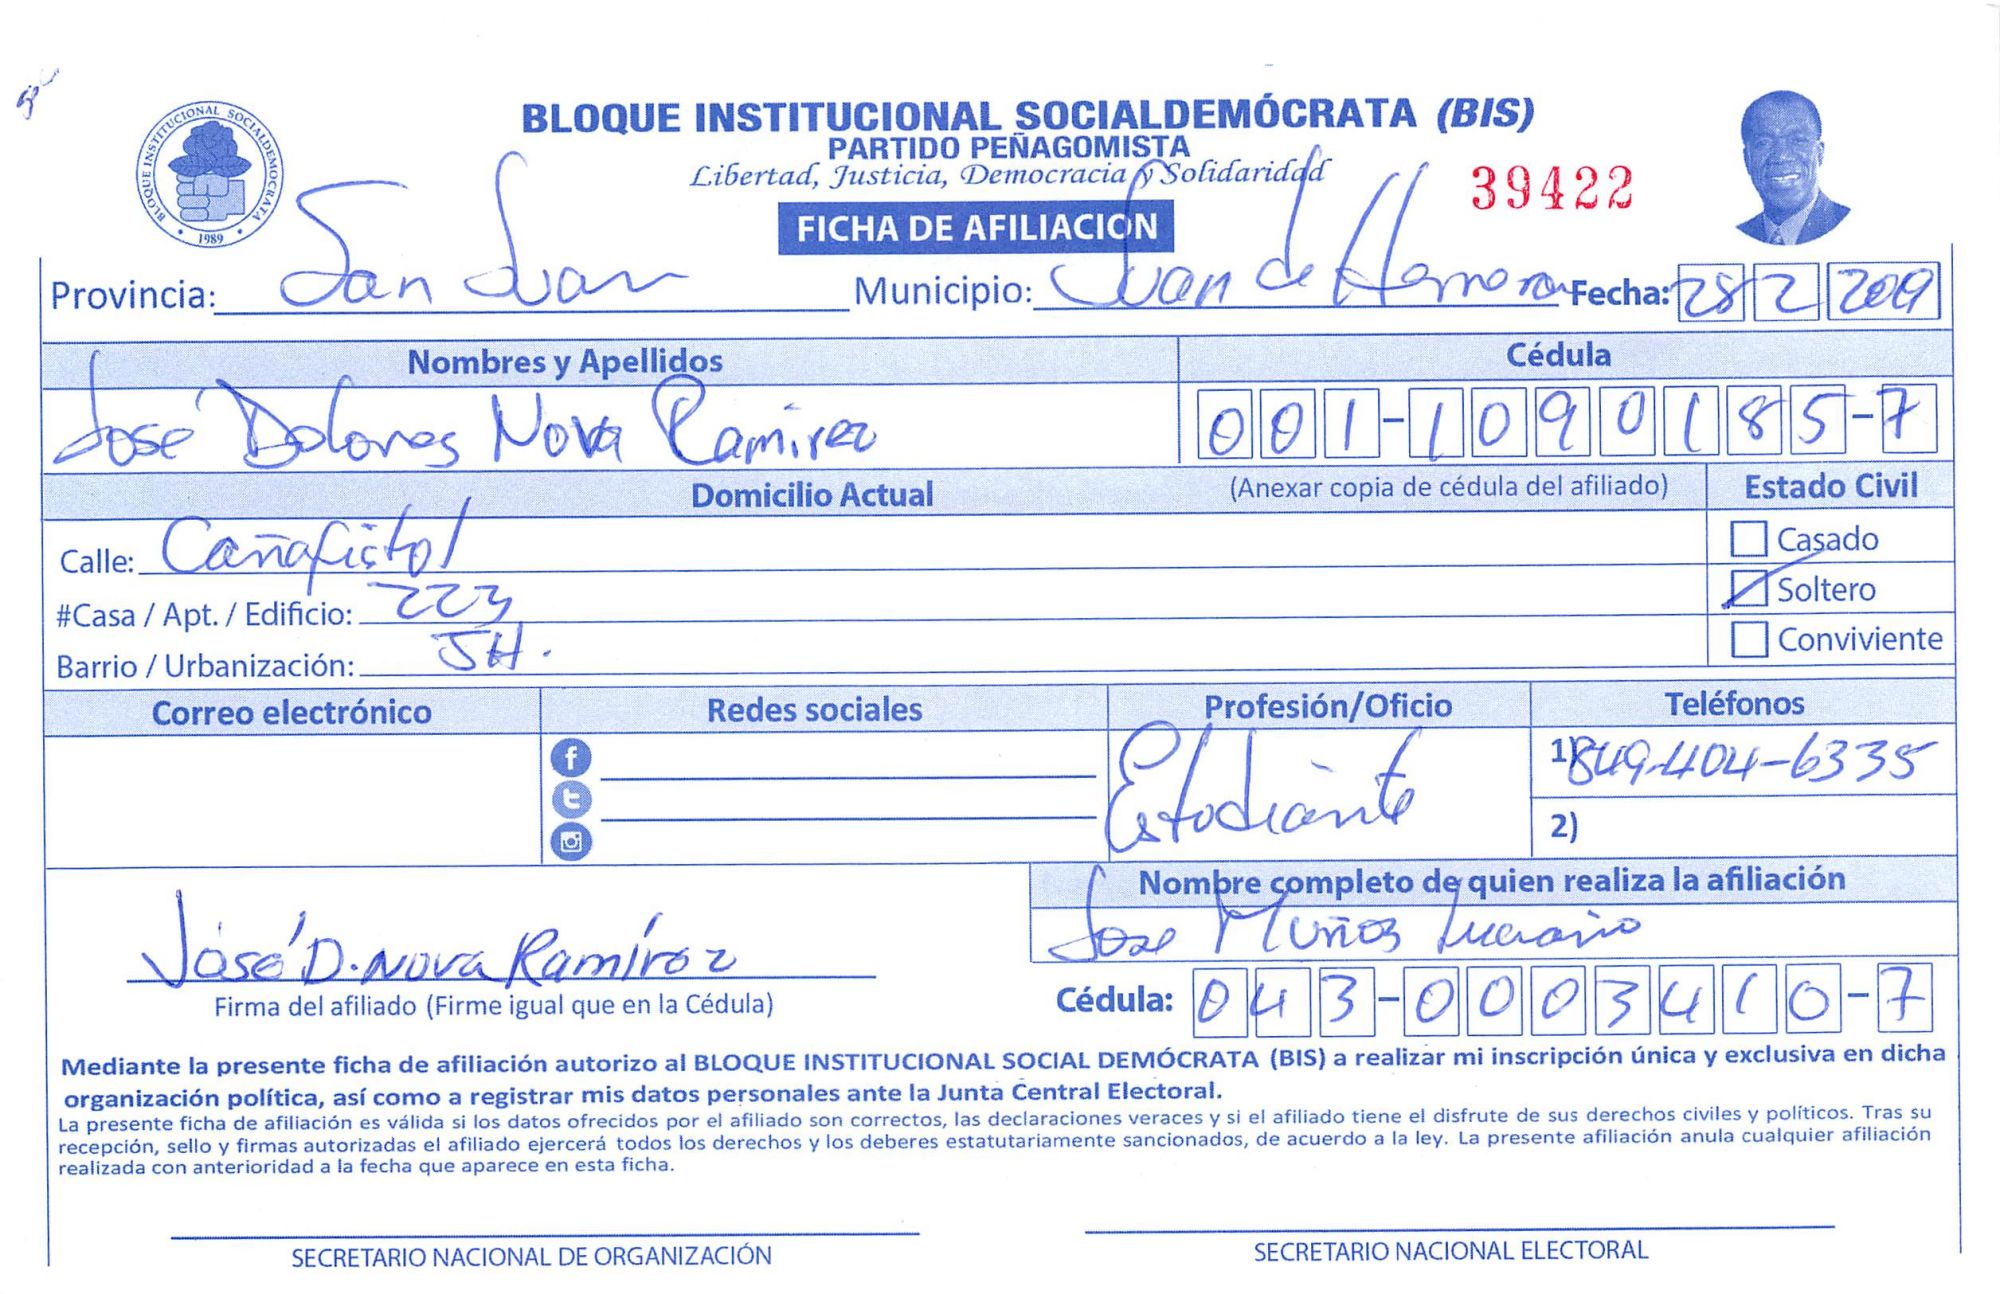 BLOQUE INSTITUCIONAL SOCIALDEMÓCRATA (BIS)
PARTIDO PEÑAGOMISTA
Libertad, Justicia, Democracia y Solidaridad
39422
BLOQUE INSTITUCIONAL SOCIALDEMOCRATA
1989
FICHA DE AFILIACION
Provincia: San Juan Municipio: Juan de Herrera Fecha: 28 2 2019
Nombres y Apellidos Cédula
José Dolores Nova Ramirez 001-1090185-7
Domicilio Actual (Anexar copia de cédula del afiliado) Estado Civil
Calle: Cañafistol Casado
#Casa / Apt. / Edificio: 223 Soltero
Barrio / Urbanización: JH. Conviviente
Correo electrónico Redes sociales Profesión/Oficio Teléfonos
Estudiante 1) 849-404-6335
2)
Nombre completo de quien realiza la afiliación
Jose Muños
José D. Nova Ramírez
Firma del afiliado (Firme igual que en la Cédula) Cédula: 043-0003410-7
Mediante la presente ficha de afiliación autorizo al BLOQUE INSTITUCIONAL SOCIAL DEMÓCRATA (BIS) a realizar mi inscripción única y exclusiva en dicha
organización política, así como a registrar mis datos personales ante la Junta Central Electoral.
La presente ficha de afiliación es válida si los datos ofrecidos por el afiliado son correctos, las declaraciones veraces y si el afiliado tiene el disfrute de sus derechos civiles y políticos. Tras su
recepción, sello y firmas autorizadas el afiliado ejercerá todos los derechos y los deberes estatutariamente sancionados, de acuerdo a la ley. La presente afiliación anula cualquier afiliación
realizada con anterioridad a la fecha que aparece en esta ficha.
SECRETARIO NACIONAL DE ORGANIZACIÓN SECRETARIO NACIONAL ELECTORAL